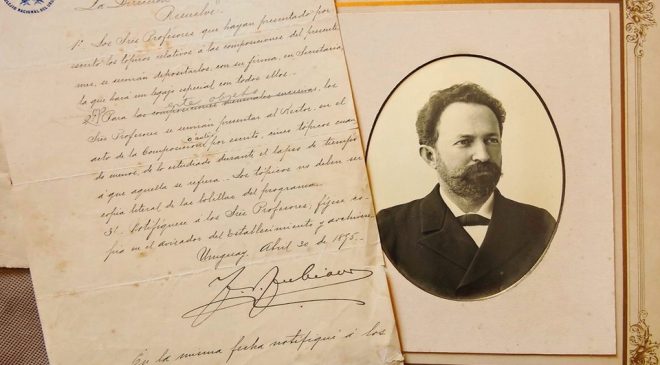 NACIONAL DEL
La Direccion
Resuelve:
1º. Los Sres Profesores que hayan presentado por
escrito los tópicos relativos á las composiciones del presente
mes, se servirán depositarlos, con su firma, en Secretaría,
la que hará un legajo especial con todos ellos.
este objeto
2º Para las composiciones sucesivas, los
Sres Profesores se servirán presentar al Rector, en el
ó antes
acto de la Composición por escrito, cinco tópicos cuan
do menos, de lo estudiado durante el lapso de tiempo
á que aquella se refiera. Los tópicos no deben ser
copia literal de las bolillas del programa.
3º. Notifíquese á los Sres Profesores; fíjese co-
pia en el avisador del Establecimiento y archívese
Uruguay, Abril 30, de 1895.
J. A. Zubiaur
En la misma fecha notifiqué á los